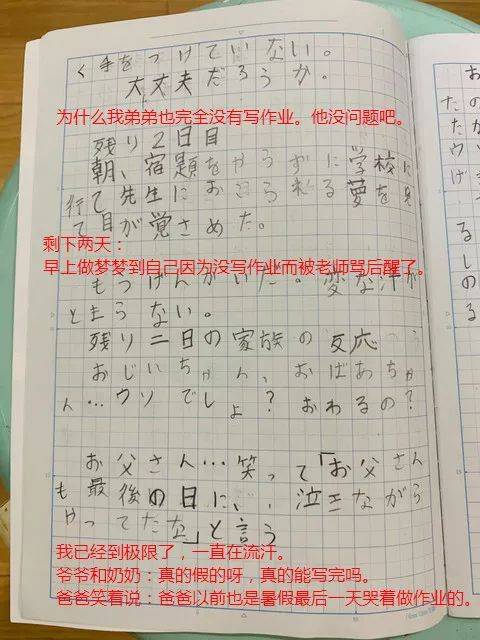 く手をつけていない。
大丈夫だろうか。
为什么我弟弟也完全没有写作业。他没问题吧。
残り2日目
朝、宿題をやらずに学校に
行て先生におこられる夢を見
て目が覚さめた。
剩下两天：
早上做梦梦到自己因为没写作业而被老师骂后醒了。
もうげんかいだ。変な汗が
とまらない。
残り二日の家族の反応
おじいちゃん、おばあちゃ
ん…ウソでしょ？おわるの？
お父さん…笑って「お父さん
も最後の日に、泣きながら
やってたな」と言う
我已经到极限了，一直在流汗。
爷爷和奶奶：真的假的呀，真的能写完吗。
爸爸笑着说：爸爸以前也是暑假最后一天哭着做作业的。
お
たの
たか
ウい
げ
るし
のる